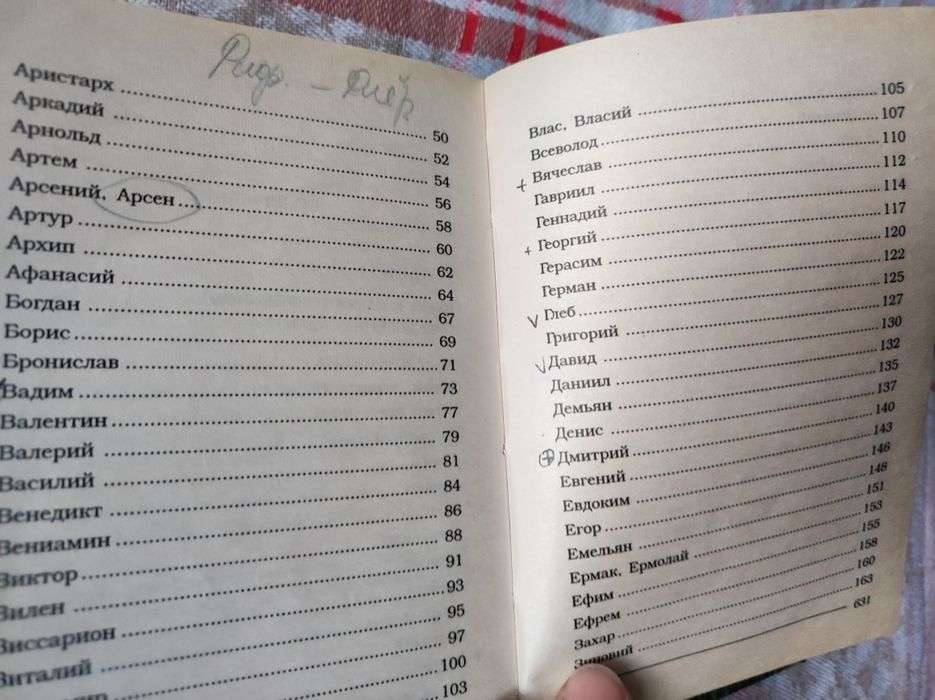 Аристарх ........ 50
Аркадий ........ 52
Арнольд ........ 54
Артем ........ 56
Арсений, Арсен ........ 58
Артур ........ 60
Архип ........ 62
Афанасий ........ 64
Богдан ........ 67
Борис ........ 69
Бронислав ........ 71
Вадим ........ 73
Валентин ........ 77
Валерий ........ 79
Василий ........ 81
Венедикт ........ 84
Вениамин ........ 86
Виктор ........ 88
Вилен ........ 91
Виссарион ........ 93
Виталий ........ 95
97
100
103
Влас, Власий ........ 105
Всеволод ........ 107
Вячеслав ........ 110
Гавриил ........ 112
Геннадий ........ 114
Георгий ........ 117
Герасим ........ 120
Герман ........ 122
Глеб ........ 125
Григорий ........ 127
Давид ........ 130
Даниил ........ 132
Демьян ........ 135
Денис ........ 137
Дмитрий ........ 140
Евгений ........ 143
Евдоким ........ 146
Егор ........ 148
Емельян ........ 151
Ермак, Ермолай ........ 153
Ефим ........ 155
Ефрем ........ 158
Захар ........ 160
Зиновий ........ 163
631